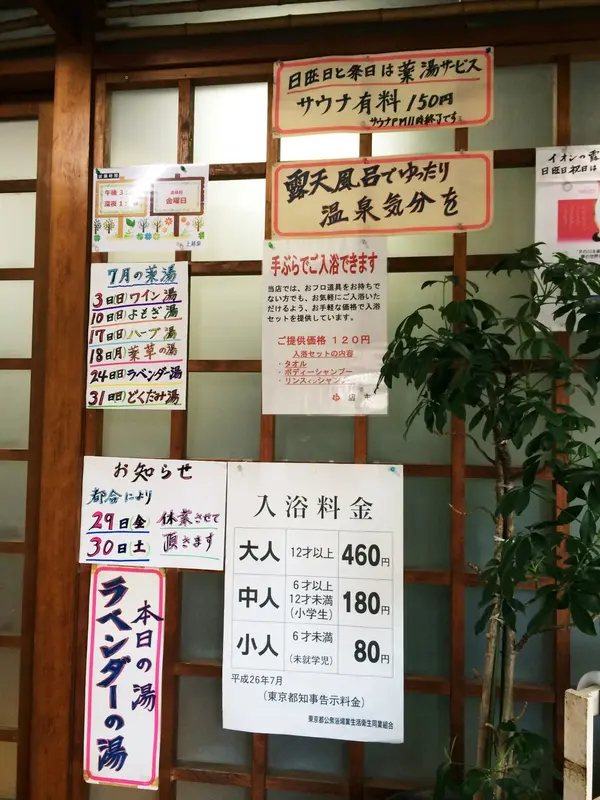 日曜日と祭日は薬湯サービス
サウナ有料150円
サウナPM11時終了です
露天風呂でゆったり
温泉気分を
イオンの露
日曜日祝日は
午後3
深夜1
定休日
金曜日
上越泉
7月の薬湯
3日(日)ワイン湯
10日(日)よもぎ湯
17日(日)ハーブ湯
18日(月)薬草の湯
24日(日)ラベンダー湯
31日(日)どくだみ湯
手ぶらでご入浴できます
当店では、おフロ道具をお持ちで
ない方でも、お気軽にご入浴いた
だけるよう、お手軽な価格で入浴
セットを提供しています。
ご提供価格 120円
入浴セットの内容
・タオル
・ボディーシャンプー
・リンスインシャン
店主
お知らせ
都合により
29日(金) 休業させて
30日(土) 頂きます
入浴料金
大人 12才以上 460円
中人 6才以上 12才未満 (小学生) 180円
小人 6才未満 (未就学児) 80円
平成26年7月
(東京都知事告示料金)
東京都公衆浴場業生活衛生同業組合
本日の湯
ラベンダーの湯